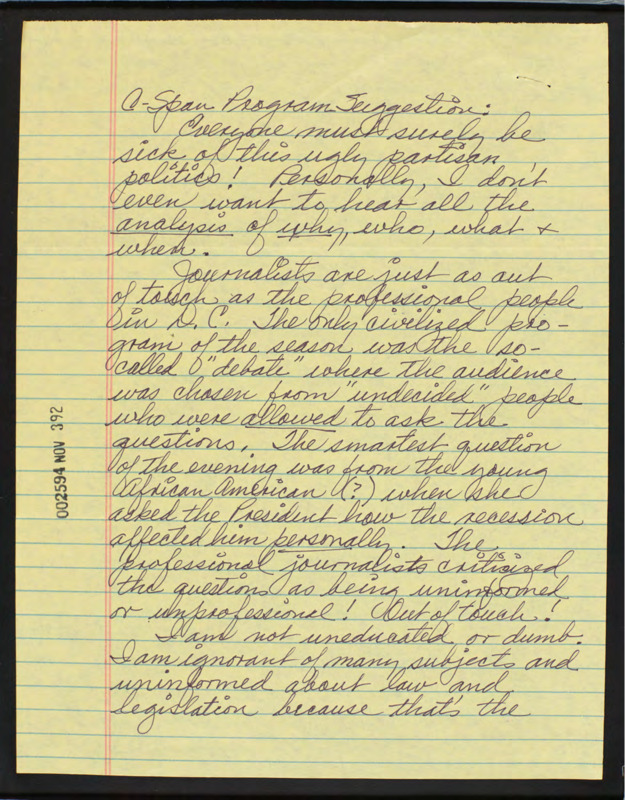 C-Span Program Suggestion:
Everyone must surely be
sick of this ugly partisan
politics! Personally, I don't
even want to hear all the
analysis of why, who, what +
when.
Journalists are just as out
of touch as the professional people
in D.C. The only civilized pro-
gram of the season was the so-
called "debate" where the audience
was chosen from "undecided" people
who were allowed to ask the
questions. The smartest question
of the evening was from the young
African American (?) when she
asked the President how the recession
affected him personally. The
professional journalists criticized
the questions as being uninformed
or unprofessional! Out of touch!
I am not uneducated or dumb.
I am ignorant of many subjects and
uninformed about law and
legislation because that's the
002594 NOV 3 92